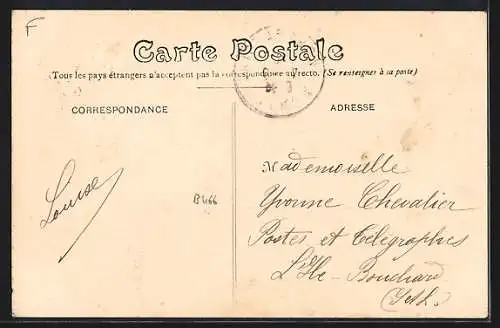 F
Carte Postale
Tous les pays étrangers n'acceptent pas la correspondance au recto. (Se renseigner à la poste)
CORRESPONDANCE
ADRESSE
Mademoiselle
Yvonne Chevalier
Postes et Télégraphes
L'Ile-Bouchard
(I et L.)
Louise
B466